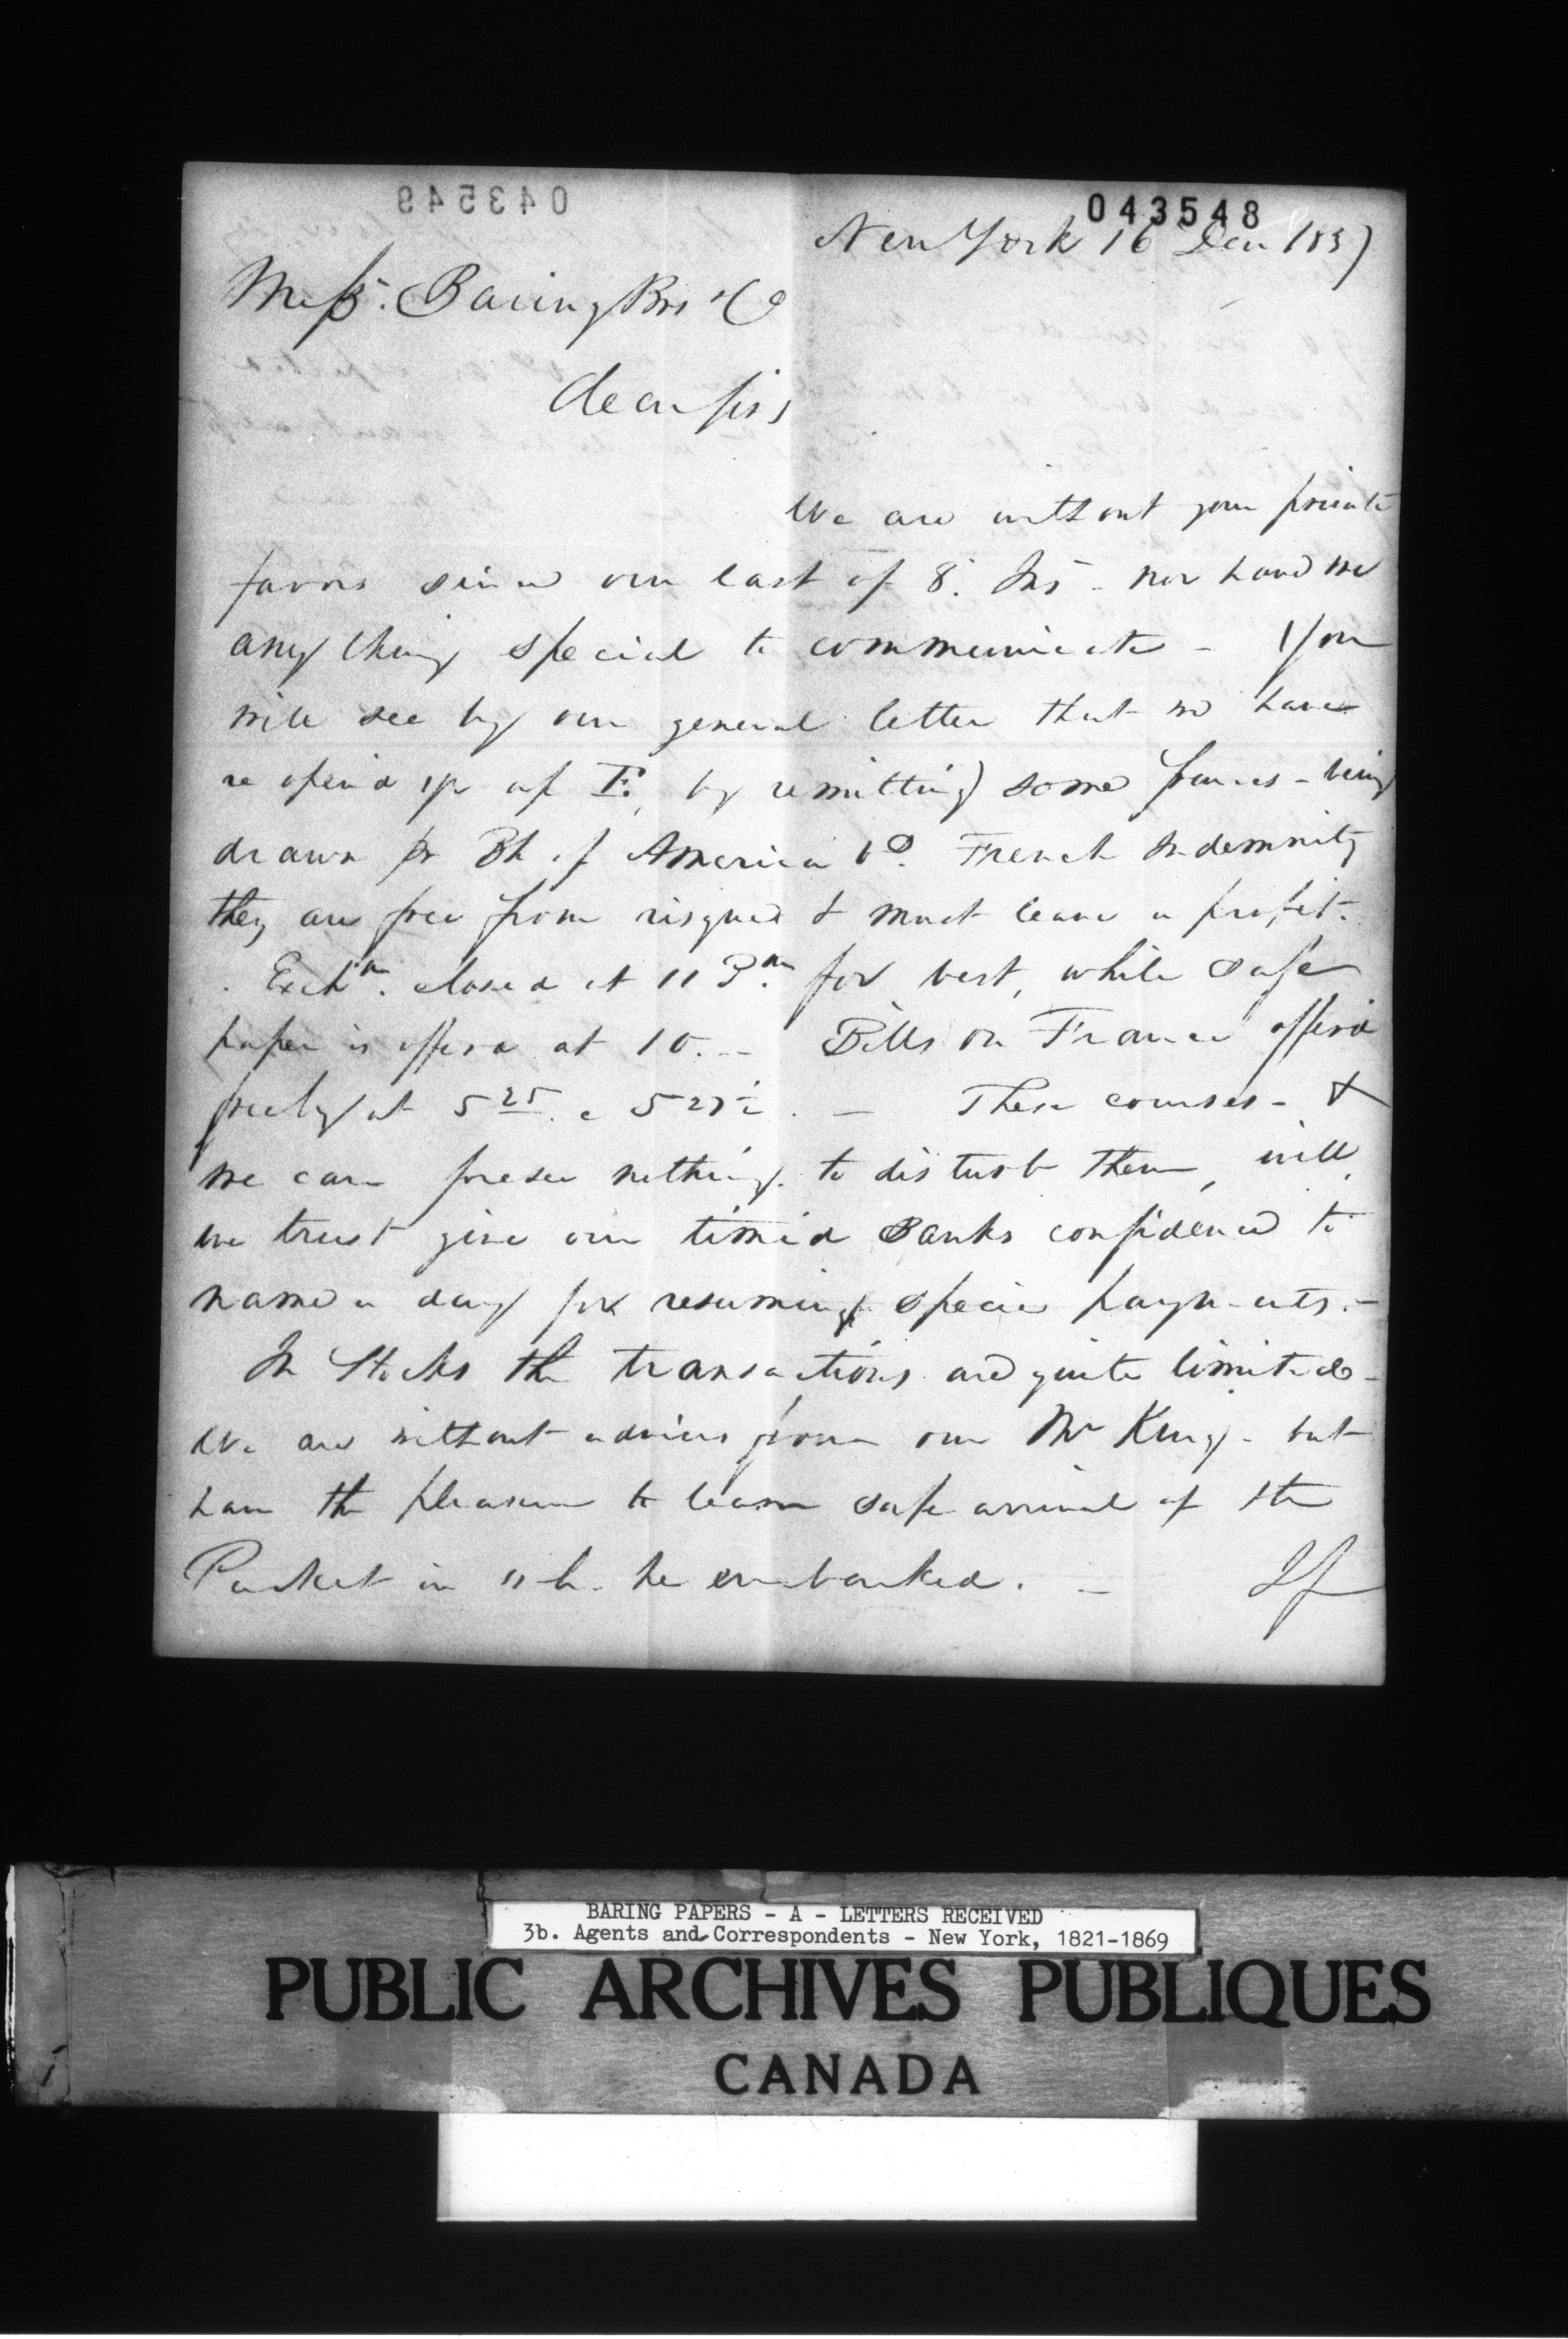 043549
043548
New York 16 Dec 1837
Messrs. Baring Bros & Co
dear sirs
We are without your private
favors since our last of 8. Ins - nor have we
any thing special to communicate - You
will see by our general letter that we have
re opend yr a/ F. by remitting some francs - being
drawn pr Bk of America French Indemnity
they are free from risque & must leave a profit.
Exch. closed at 11 for best, while safe
paper is offerd at 10. - Bills on France offerd
freely at 5 25 a 5 27½. - These courses - &
we can foresee nothing to disturb them, will,
we trust give our timid Banks confidence to
name a day for resuming specie payments. -
In Stocks the transactions are quite limited -
We are without advices from our Mr King - but
have the pleasure to learn safe arrival of the
Packet in wh. he embarked. - If
BARING PAPERS - A - LETTERS RECEIVED
3b. Agents and Correspondents - New York, 1821-1869
PUBLIC ARCHIVES PUBLIQUES
CANADA